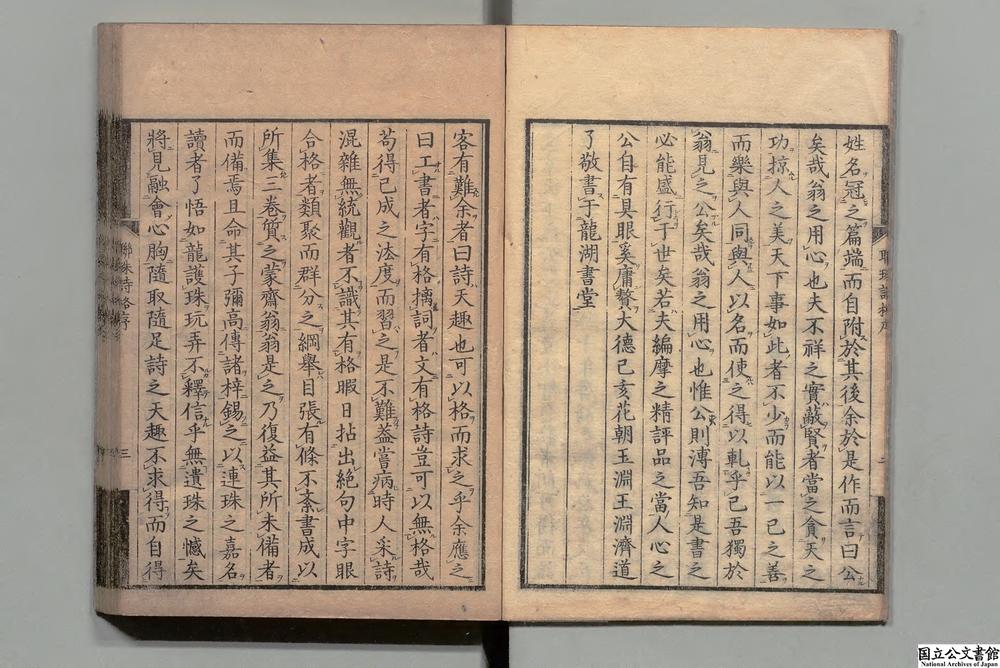 姓名冠之篇端而自附於其後余於是作而言曰公
矣哉翁之用心也夫不祥之實蔽賢者當之貪天之
功掠人之美天下事如此者不少而能以一己之善
而樂與人同與人以名而使之得以軋乎己吾獨於
翁見之公矣哉翁之用心也惟公則溥吾知是書之
必能盛行于世矣若夫編摩之精評品之當人心之
公自有具眼奚庸贅大德己亥花朝玉淵王淵濟道
了敬書于龍湖書堂
客有難余者曰詩天趣也可以格而求之乎余應之
曰工書者字有格摛詞者文有格詩豈可以無格哉
苟得已成之法度而習之是不難益嘗病時人采詩
混雜無統觀者不識其有格暇日拈出絶句中字眼
合格者類聚而群分之綱舉目張有條不紊書成以
所集三卷質之蒙齋翁翁是之乃復益其所未備者
而備焉且命其子彌高傳諸梓錫之以連珠之嘉名
讀者了悟如龍護珠玩弄不釋信乎無遺珠之憾矣
將見融會心胸隨取隨足詩之天趣不求得而自得
聯珠詩格序
三
国立公文書館
National Archives of Japan